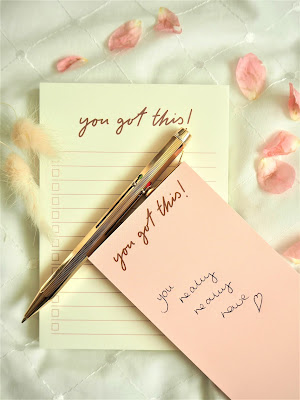 you got this!
you got this!
you
really
really
have ♡